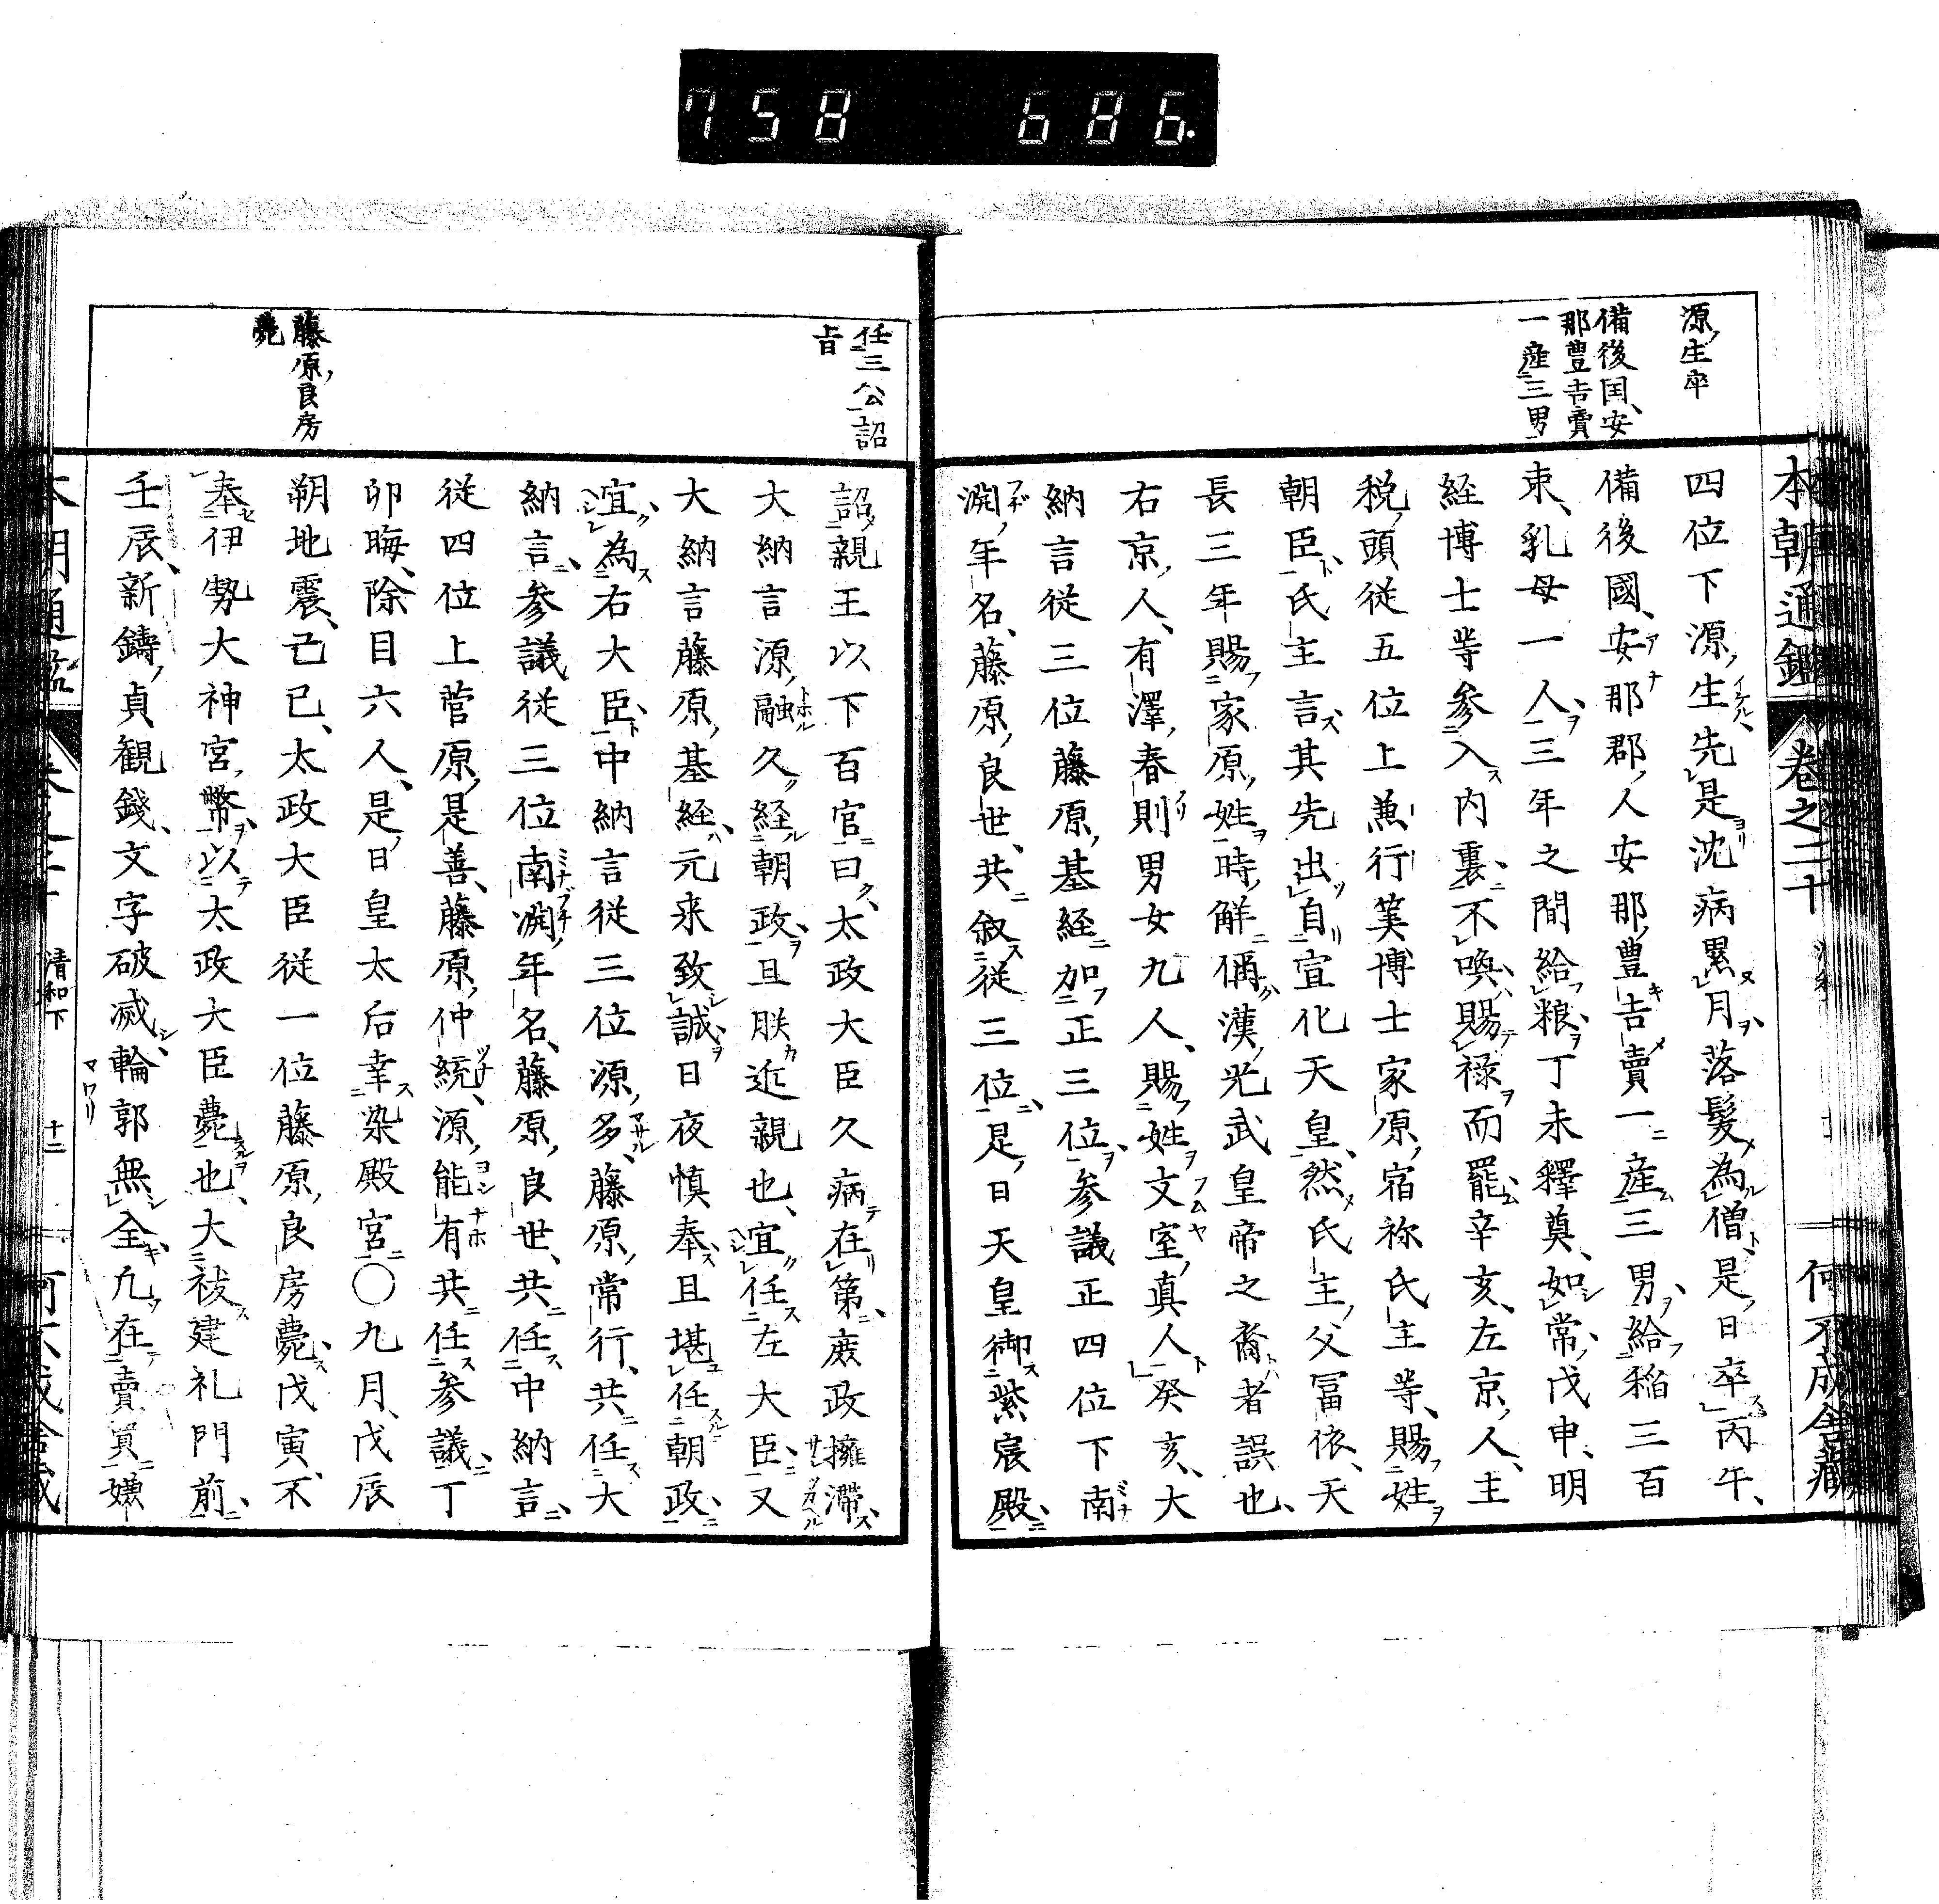 758 686.
本朝通鑑 卷之二十 何不成舎藏
源生卒
備後国安
那豊吉賣
一産三男
四位下源生先是沈病累月落髪為僧是日卒丙午
備後國安那郡人安那豊吉賣一産三男給稲三百
束乳母一人三年之間給粮丁未釋奠如常戊申明
経博士等参入内裏不喚賜禄而罷辛亥左京人主
税頭従五位上兼行筭博士家原宿祢氏主等賜姓
朝臣氏主言其先出自宣化天皇然氏主父冨依天
長三年賜家原姓時觧偁漢光武皇帝之裔者誤也
右京人有澤春則男女九人賜姓文室真人癸亥大
納言従三位藤原基経加正三位参議正四位下南
渕年名藤原良世共叙従三位是日天皇御紫宸殿
任三公詔
旨
藤原良房
薨
詔親王以下百官曰太政大臣久病在第庶政擁滯
大納言源融久経朝政且朕近親也宜任左大臣又
大納言藤原基経元来致誠日夜慎奉且堪任朝政
宜為右大臣中納言従三位源多藤原常行共任大
納言参議従三位南渕年名藤原良世共任中納言
従四位上菅原是善藤原仲統源能有共任参議丁
卯晦除目六人是日皇太后幸染殿宮〇九月戊辰
朔地震己巳太政大臣従一位藤原良房薨戊寅不
奉伊勢大神宮幣以太政大臣薨也大祓建礼門前
壬辰新鑄貞観錢文字破滅輪郭無全凢在賣買嫌
清和下 十二